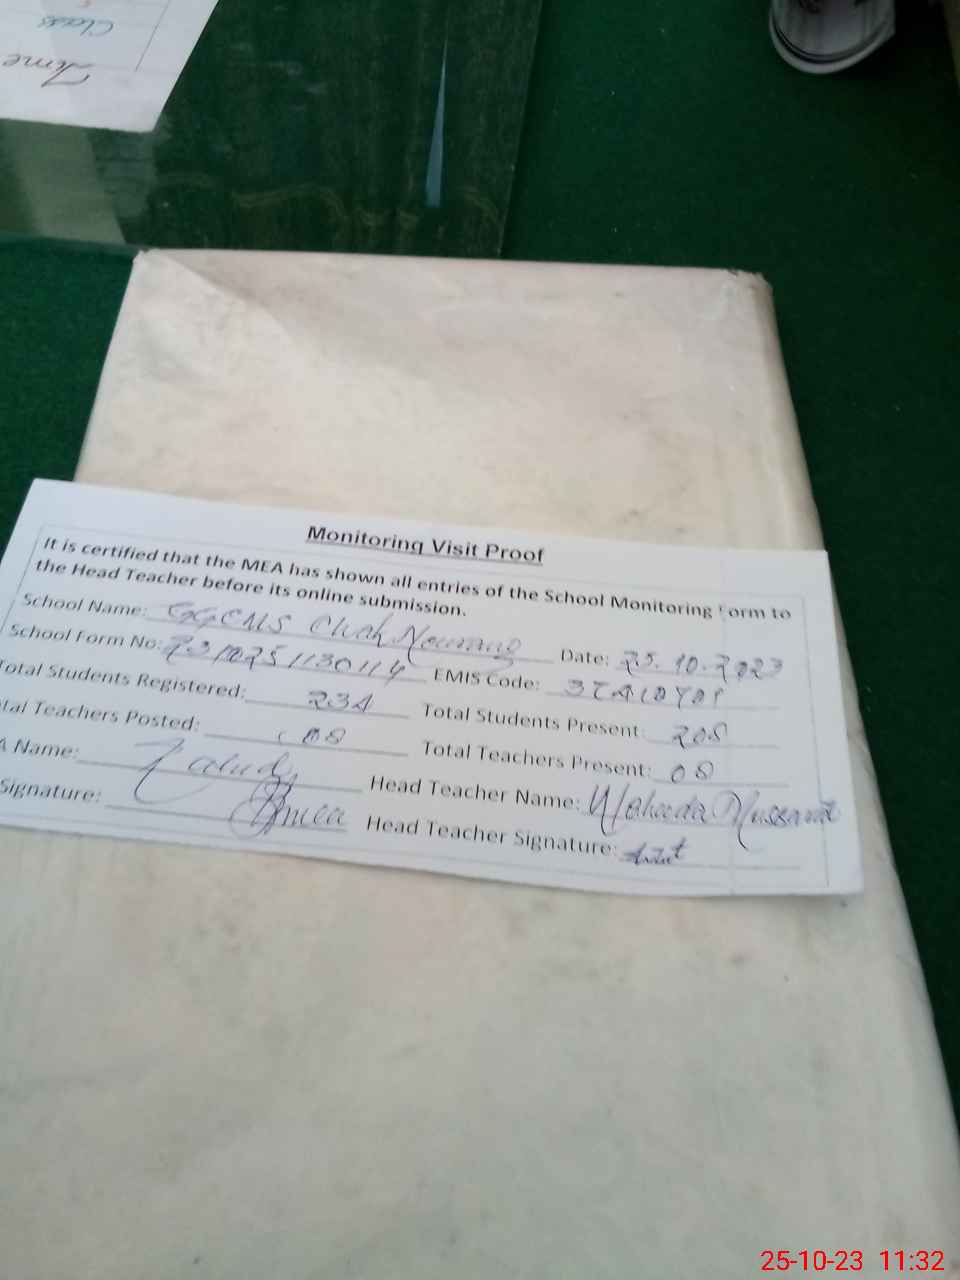 Time
Class
Monitoring Visit Proof
It is certified that the MEA has shown all entries of the School Monitoring Form to
the Head Teacher before its online submission.
School Name: GGEMS Chak Naurang Date: 25.10.2023
School Form No: 2310251130114 EMIS Code:
Total Students Registered: 234 Total Students Present: 208
tal Teachers Posted: 08 Total Teachers Present: 08
A Name: Head Teacher Name: Waheeda Mussarat
Signature: Head Teacher Signature:
25-10-23 11:32